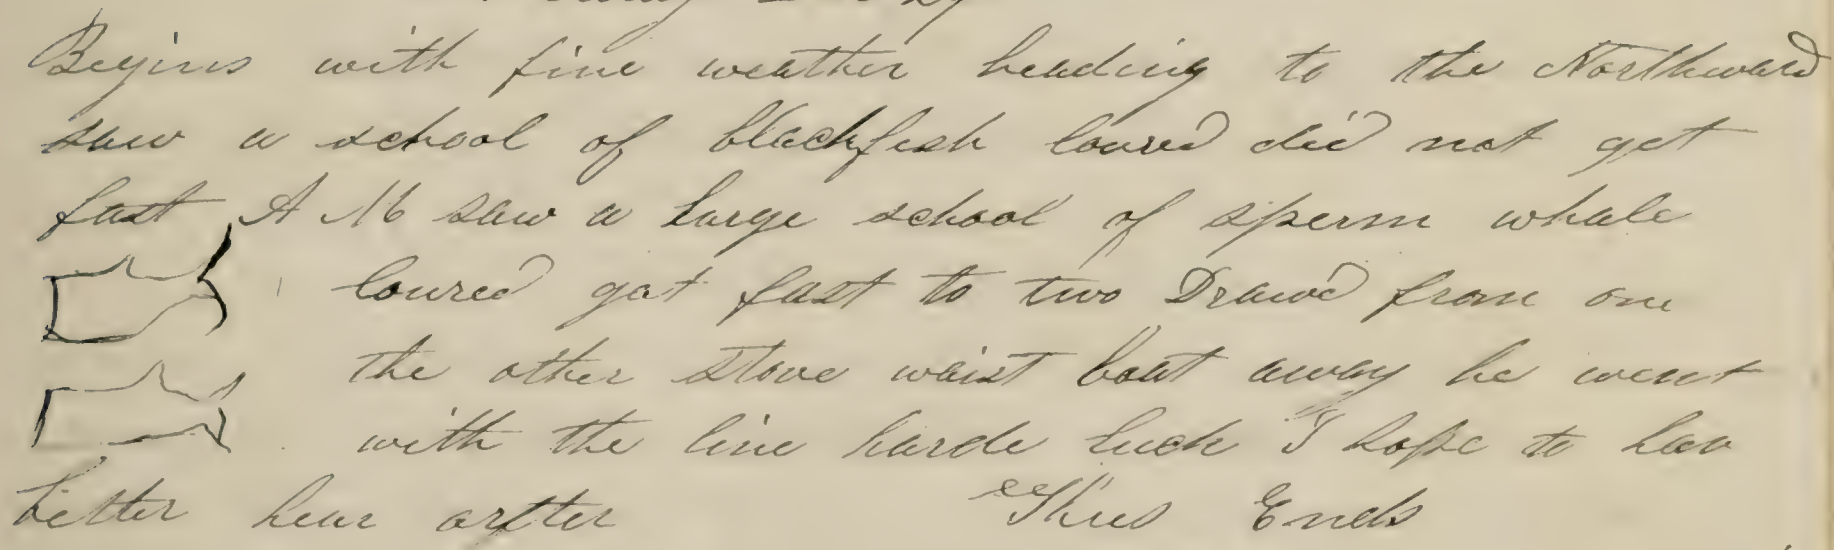 Begins with fine weather heading to the Northward
saw a school of blackfish loured did not get
fast A M saw a large school of sperm whale
loured got fast to two Drawd from one
the other stove waist boat away he went
with the line harde luck I hope to hav
better hear arfter Thus Ends